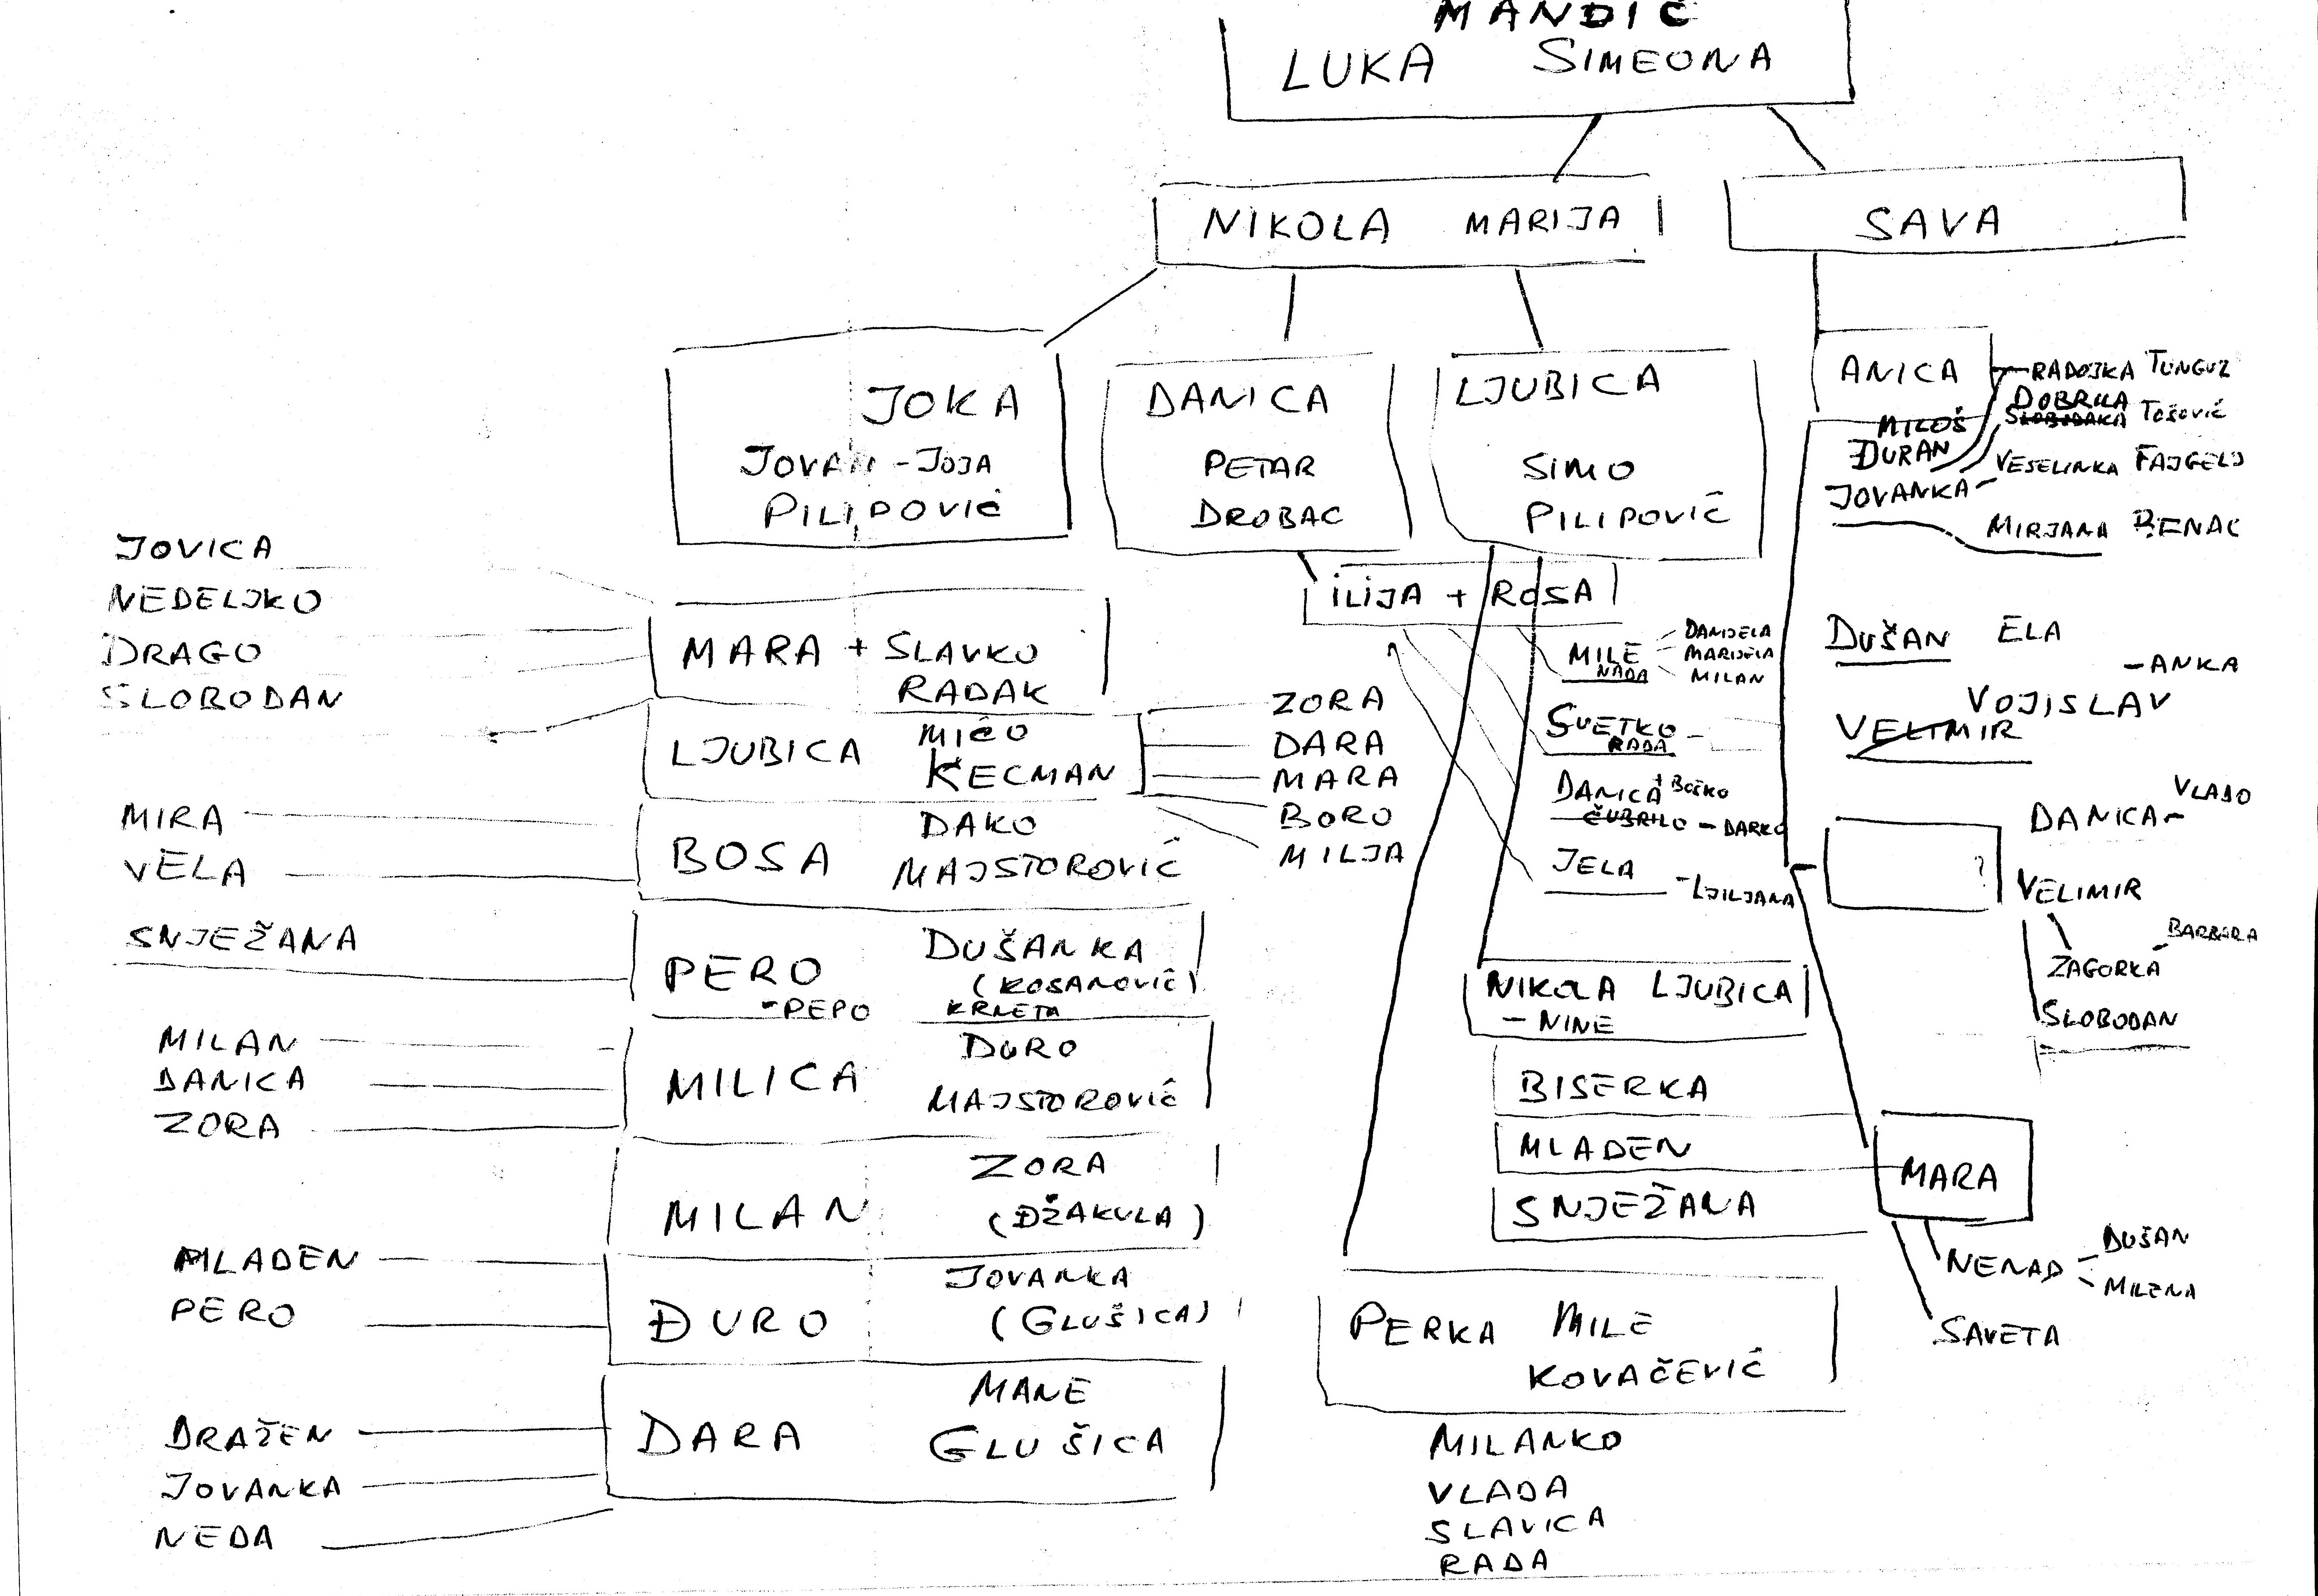 MANDIĆ
LUKA SIMEONA
NIKOLA MARIJA
SAVA
JOKA
JOVAN - JOJA
PILIPOVIĆ
DANICA
PETAR
DROBAC
LJUBICA
SIMO
PILIPOVIĆ
ANICA
RADOJKA TUNGUZ
DOBRILA
SLOBODANKA TOŠOVIĆ
MILOŠ
ĐURAN
VESELINKA FAJGELJ
JOVANKA
MIRJANA BENAC
JOVICA
NEDELJKO
DRAGO
SLOBODAN
MARA + SLAVKO
RADAK
ILIJA + ROSA
MILE
NADA
DANIJELA
MARIJELA
MILAN
SVETKO
RADA
DANICA + BOŠKO
ČUBRILO - DARKO
JELA
- LJILJANA
DUŠAN ELA
- ANKA
VOJISLAV
VELIMIR
LJUBICA MIĆO
KECMAN
ZORA
DARA
MARA
BORO
MILJA
MIRA
VELA
BOSA DAKO
MAJSTOROVIĆ
DANICA - VLADO
?
VELIMIR
ZAGORKA - BARBARA
SLOBODAN
SNJEŽANA
PERO DUŠANKA
- PEPO (KOSANOVIĆ)
KRLETA
NIKOLA LJUBICA
- NINE
MILAN
DANICA
ZORA
MILICA ĐURO
MAJSTOROVIĆ
BISERKA
MLADEN
SNJEŽANA
MARA
MILAN ZORA
(DŽAKULA)
NENAD
DUŠAN
MILENA
SAVETA
MLADEN
PERO
ĐURO JOVANKA
(GLUŠICA)
PERKA MILE
KOVAČEVIĆ
DRAŽEN
JOVANKA
NEDA
DARA MANE
GLUŠICA
MILANKO
VLADA
SLAVICA
RADA